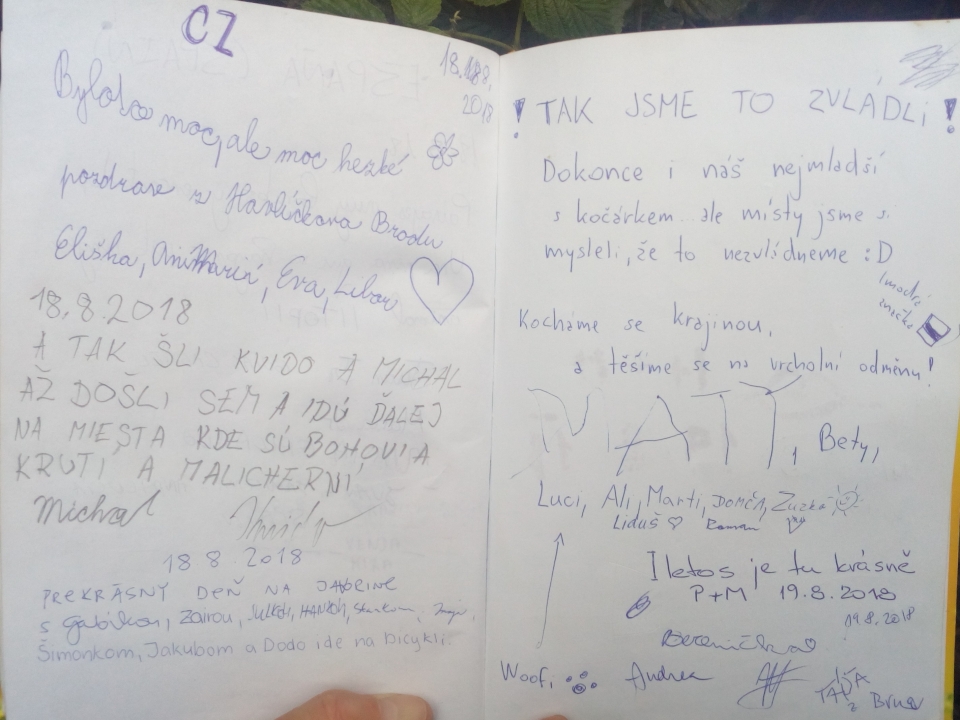 CZ
18.8.
2018
Bylo to moc, ale moc hezké
pozdrav z Havlíčkova Brodu
Eliška, Ani, Eva, Libor
18.8.2018
A TAK ŠLI KVIDO A MICHAL
AŽ DOŠLI SEM A IDÚ ĎALEJ
NA MIESTA KDE SÚ BOHOVIA
KRUTÍ A MALICHERNÍ
Michal Kvido
18 8. 2018
PREKRÁSNY DEŇ NA JAVORINE
s Gabikou, Zairou,
Šimonkom, Jakubom a Dodo ide na bicykli.
! TAK JSME TO ZVLÁDLI !
Dokonce i náš nejmladší
s kočárkem.. ale místy jsme si
mysleli, že to nezvládneme :D
Kocháme se krajinou,
a těšíme se na vrcholní odměnu!
1modré
značka
MATY, Bety,
Luci, Ali, Marti, Domča, Zuzka
Liduš Roman
I letos je tu krásně
P+M 19.8.2018
19.8.2018
Woof, Andrea
TÁŇA
z Brna